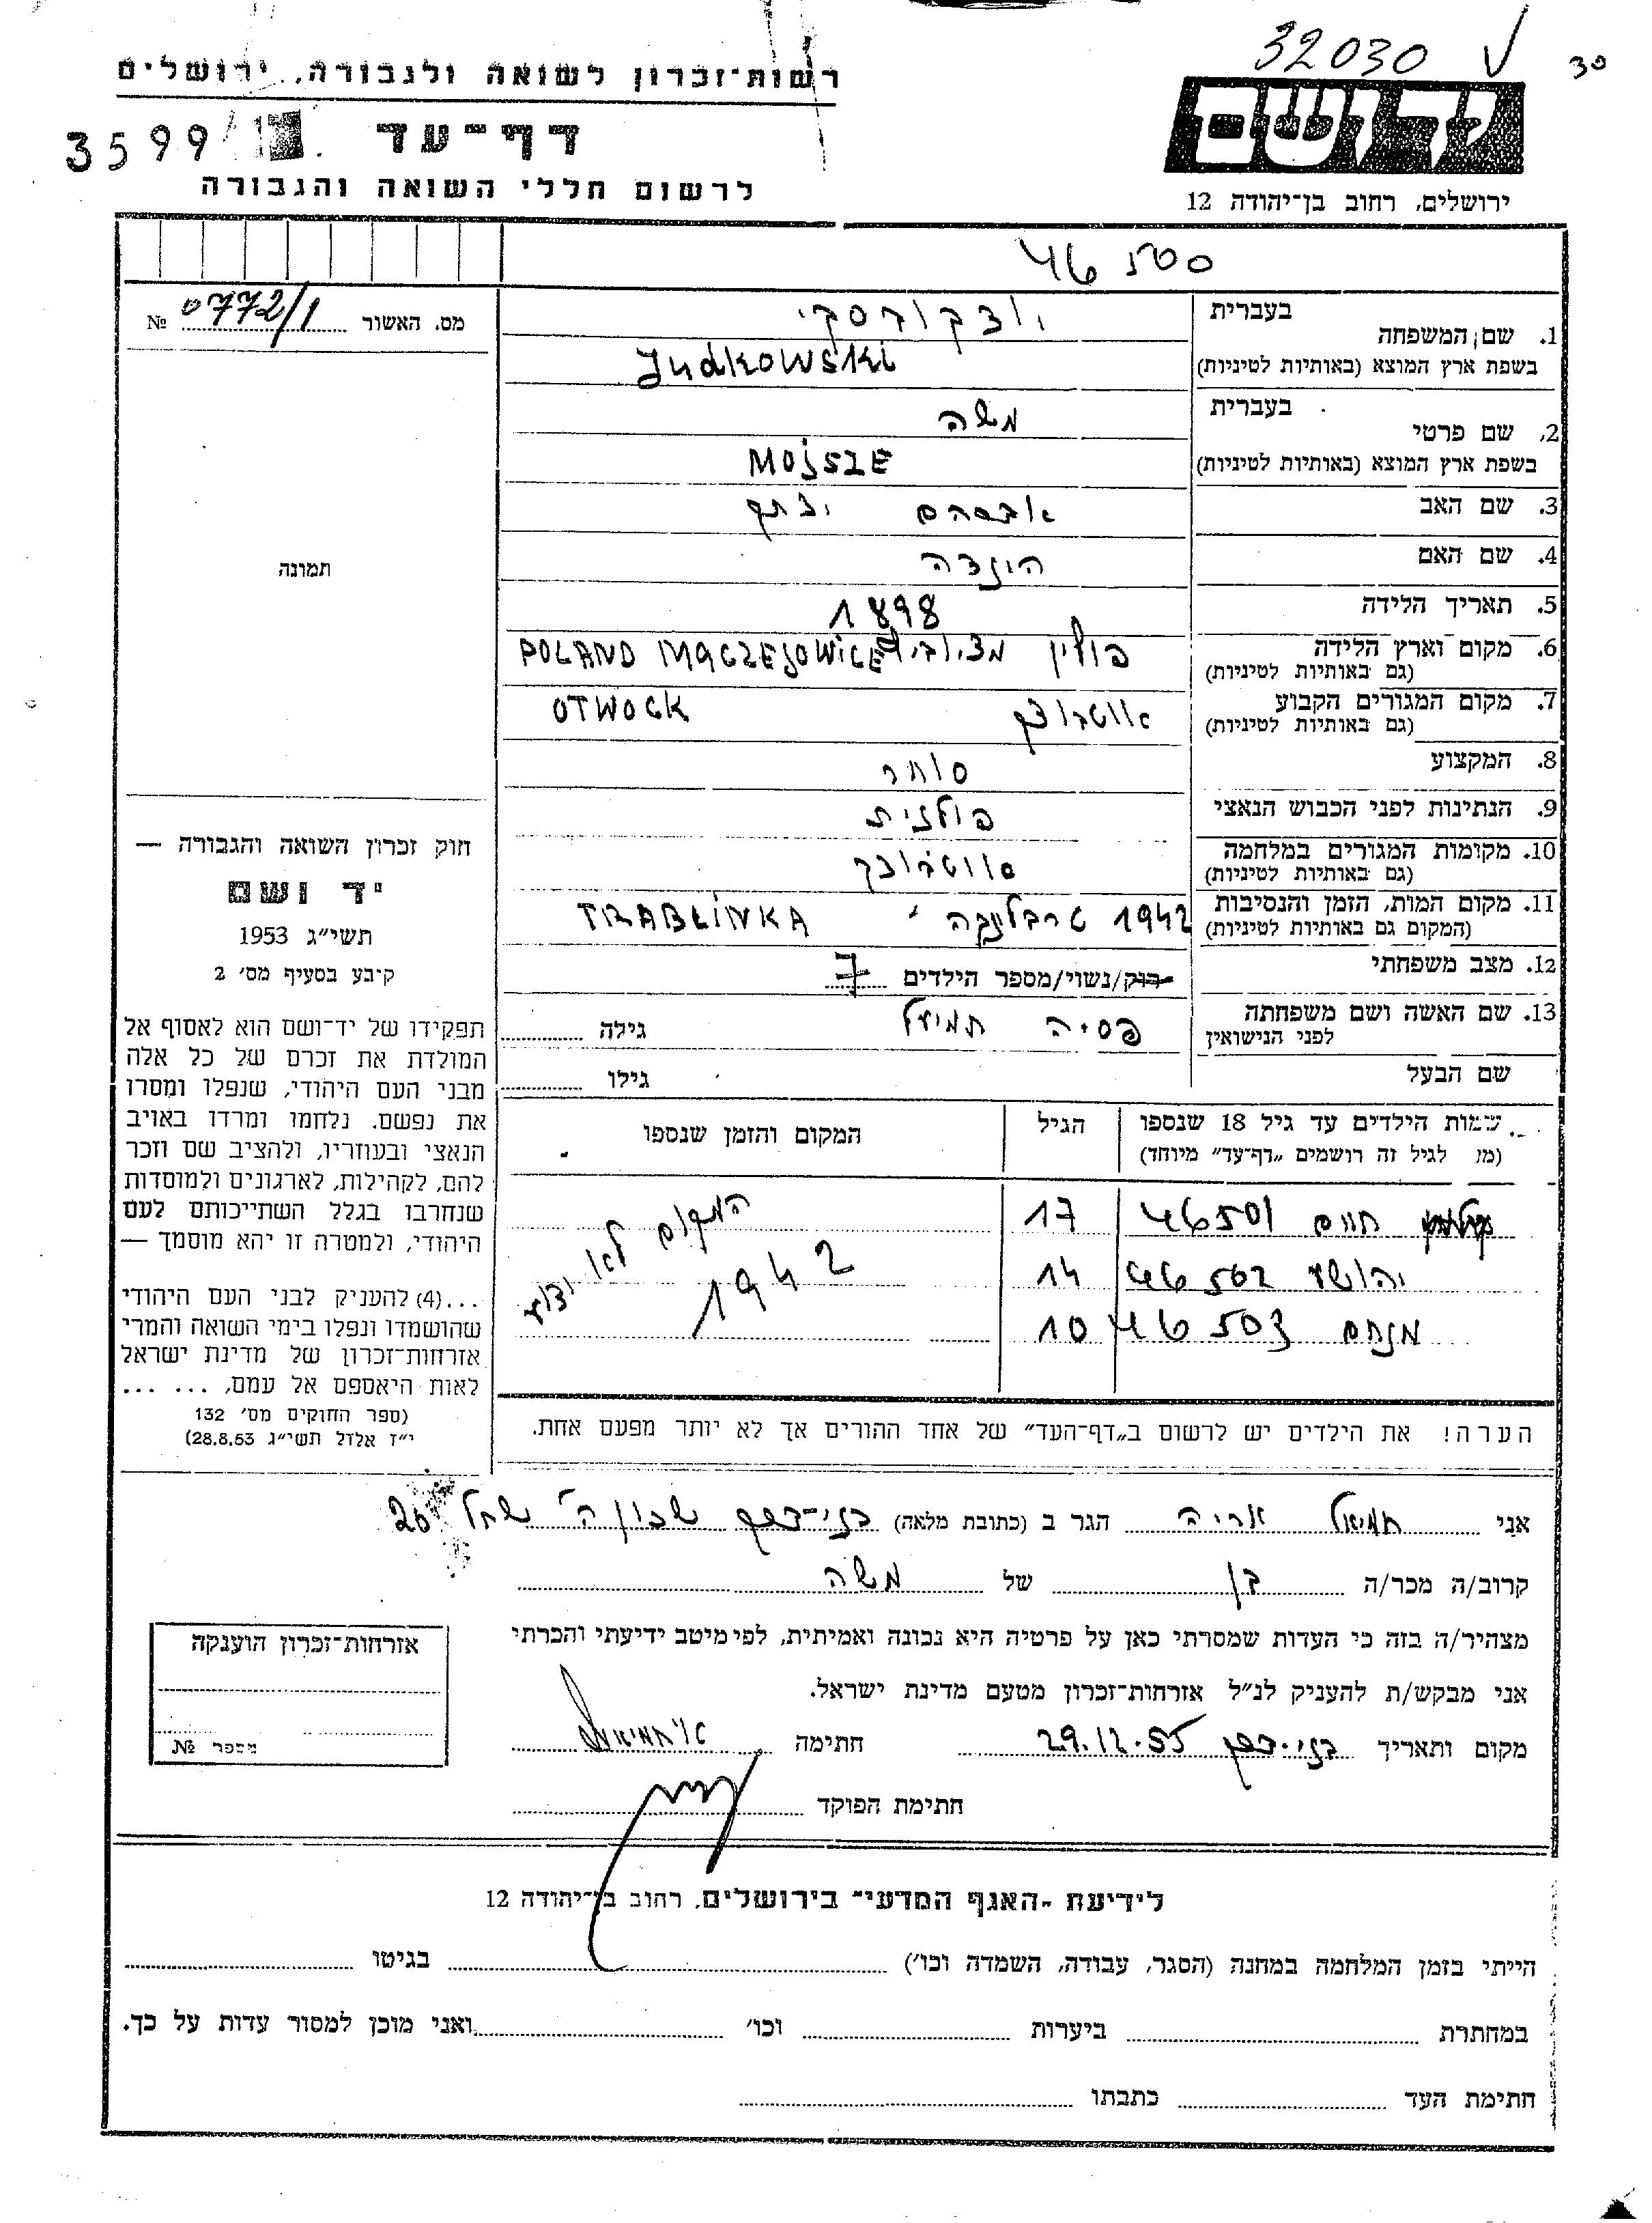 32030 ✓ 30
רשות־זכרון לשואה ולגבורה, ירושלים
יד ושם
3599
דף־עד
לרשום חללי השואה והגבורה
ירושלים, רחוב בן־יהודה 12
46500
מס. האשור № 0772/1
1. שם המשפחה
בעברית
יודקובסקי
בשפת ארץ המוצא (באותיות לטיניות) Judkowski
2. שם פרטי
בעברית
משה
בשפת ארץ המוצא (באותיות לטיניות) MOJSZE
3. שם האב אברהם
4. שם האם הינדה
5. תאריך הלידה 1898
6. מקום וארץ הלידה (גם באותיות לטיניות) פולין POLAND MACZEJOWICE
7. מקום המגורים הקבוע (גם באותיות לטיניות) אוטבוצק OTWOCK
8. המקצוע סוחר
9. הנתינות לפני הכבוש הנאצי פולנית
10. מקומות המגורים במלחמה (גם באותיות לטיניות)
11. מקום המות, הזמן והנסיבות (המקום גם באותיות לטיניות) 1942 טרבלינקה TRABLINKA
12. מצב משפחתי רוק/נשוי/מספר הילדים 7
13. שם האשה ושם משפחתה לפני הנישואין פסיה חמיאל גילה
שם הבעל גילו
תמונה
חוק זכרון השואה והגבורה —
יד ושם
תשי״ג 1953
קיבע בסעיף מס׳ 2
תפקידו של יד־ושם הוא לאסוף אל
המולדת את זכרם של כל אלה
מבני העם היהודי, שנפלו ומסרו
את נפשם. נלחמו ומרדו באויב
הנאצי ובעוזריו, ולהציב שם וזכר
להם, לקהילות, לארגונים ולמוסדות
שנחרבו בגלל השתייכותם לעם
היהודי, ולמטרה זו יהא מוסמך —
...(4) להעניק לבני העם היהודי
שהושמדו ונפלו בימי השואה והמרי
אזרחות־זכרון של מדינת ישראל
לאות היאספם אל עמם, ... ...
(ספר החוקים מס׳ 132
י״ז אלול תשי״ג 28.8.53)
שמות הילדים עד גיל 18 שנספו הגיל המקום והזמן שנספו
לגיל זה רושמים „דף־עד״ מיוחד)
חיים 46501 17 המקום לא ידוע
יהושע 46502 14 1942
מנחם 46503 10
הערה! את הילדים יש לרשום ב„דף־העד״ של אחד ההורים אך לא יותר מפעם אחת.
אני חמיאל אריה הגר ב (כתובת מלאה) בני־ברק שכון ה׳ 26
קרוב/ה מכר/ה בן של משה
מצהיר/ה בזה כי העדות שמסרתי כאן על פרטיה היא נכונה ואמיתית, לפי מיטב ידיעתי והכרתי
אני מבקש/ת להעניק לנ״ל אזרחות־זכרון מטעם מדינת ישראל.
מקום ותאריך בני־ברק 29.12.55 חתימה א׳ חמיאל
חתימת הפוקד
אזרחות־זכרון הוענקה
מספר №
לידיעת „האגף המדעי״ בירושלים, רחוב בן־יהודה 12
הייתי בזמן המלחמה במחנה (הסגר, עבודה, השמדה וכו׳) בגיטו
במחתרת ביערות וכו׳ ואני מוכן למסור עדות על כך.
חתימת העד כתבתו